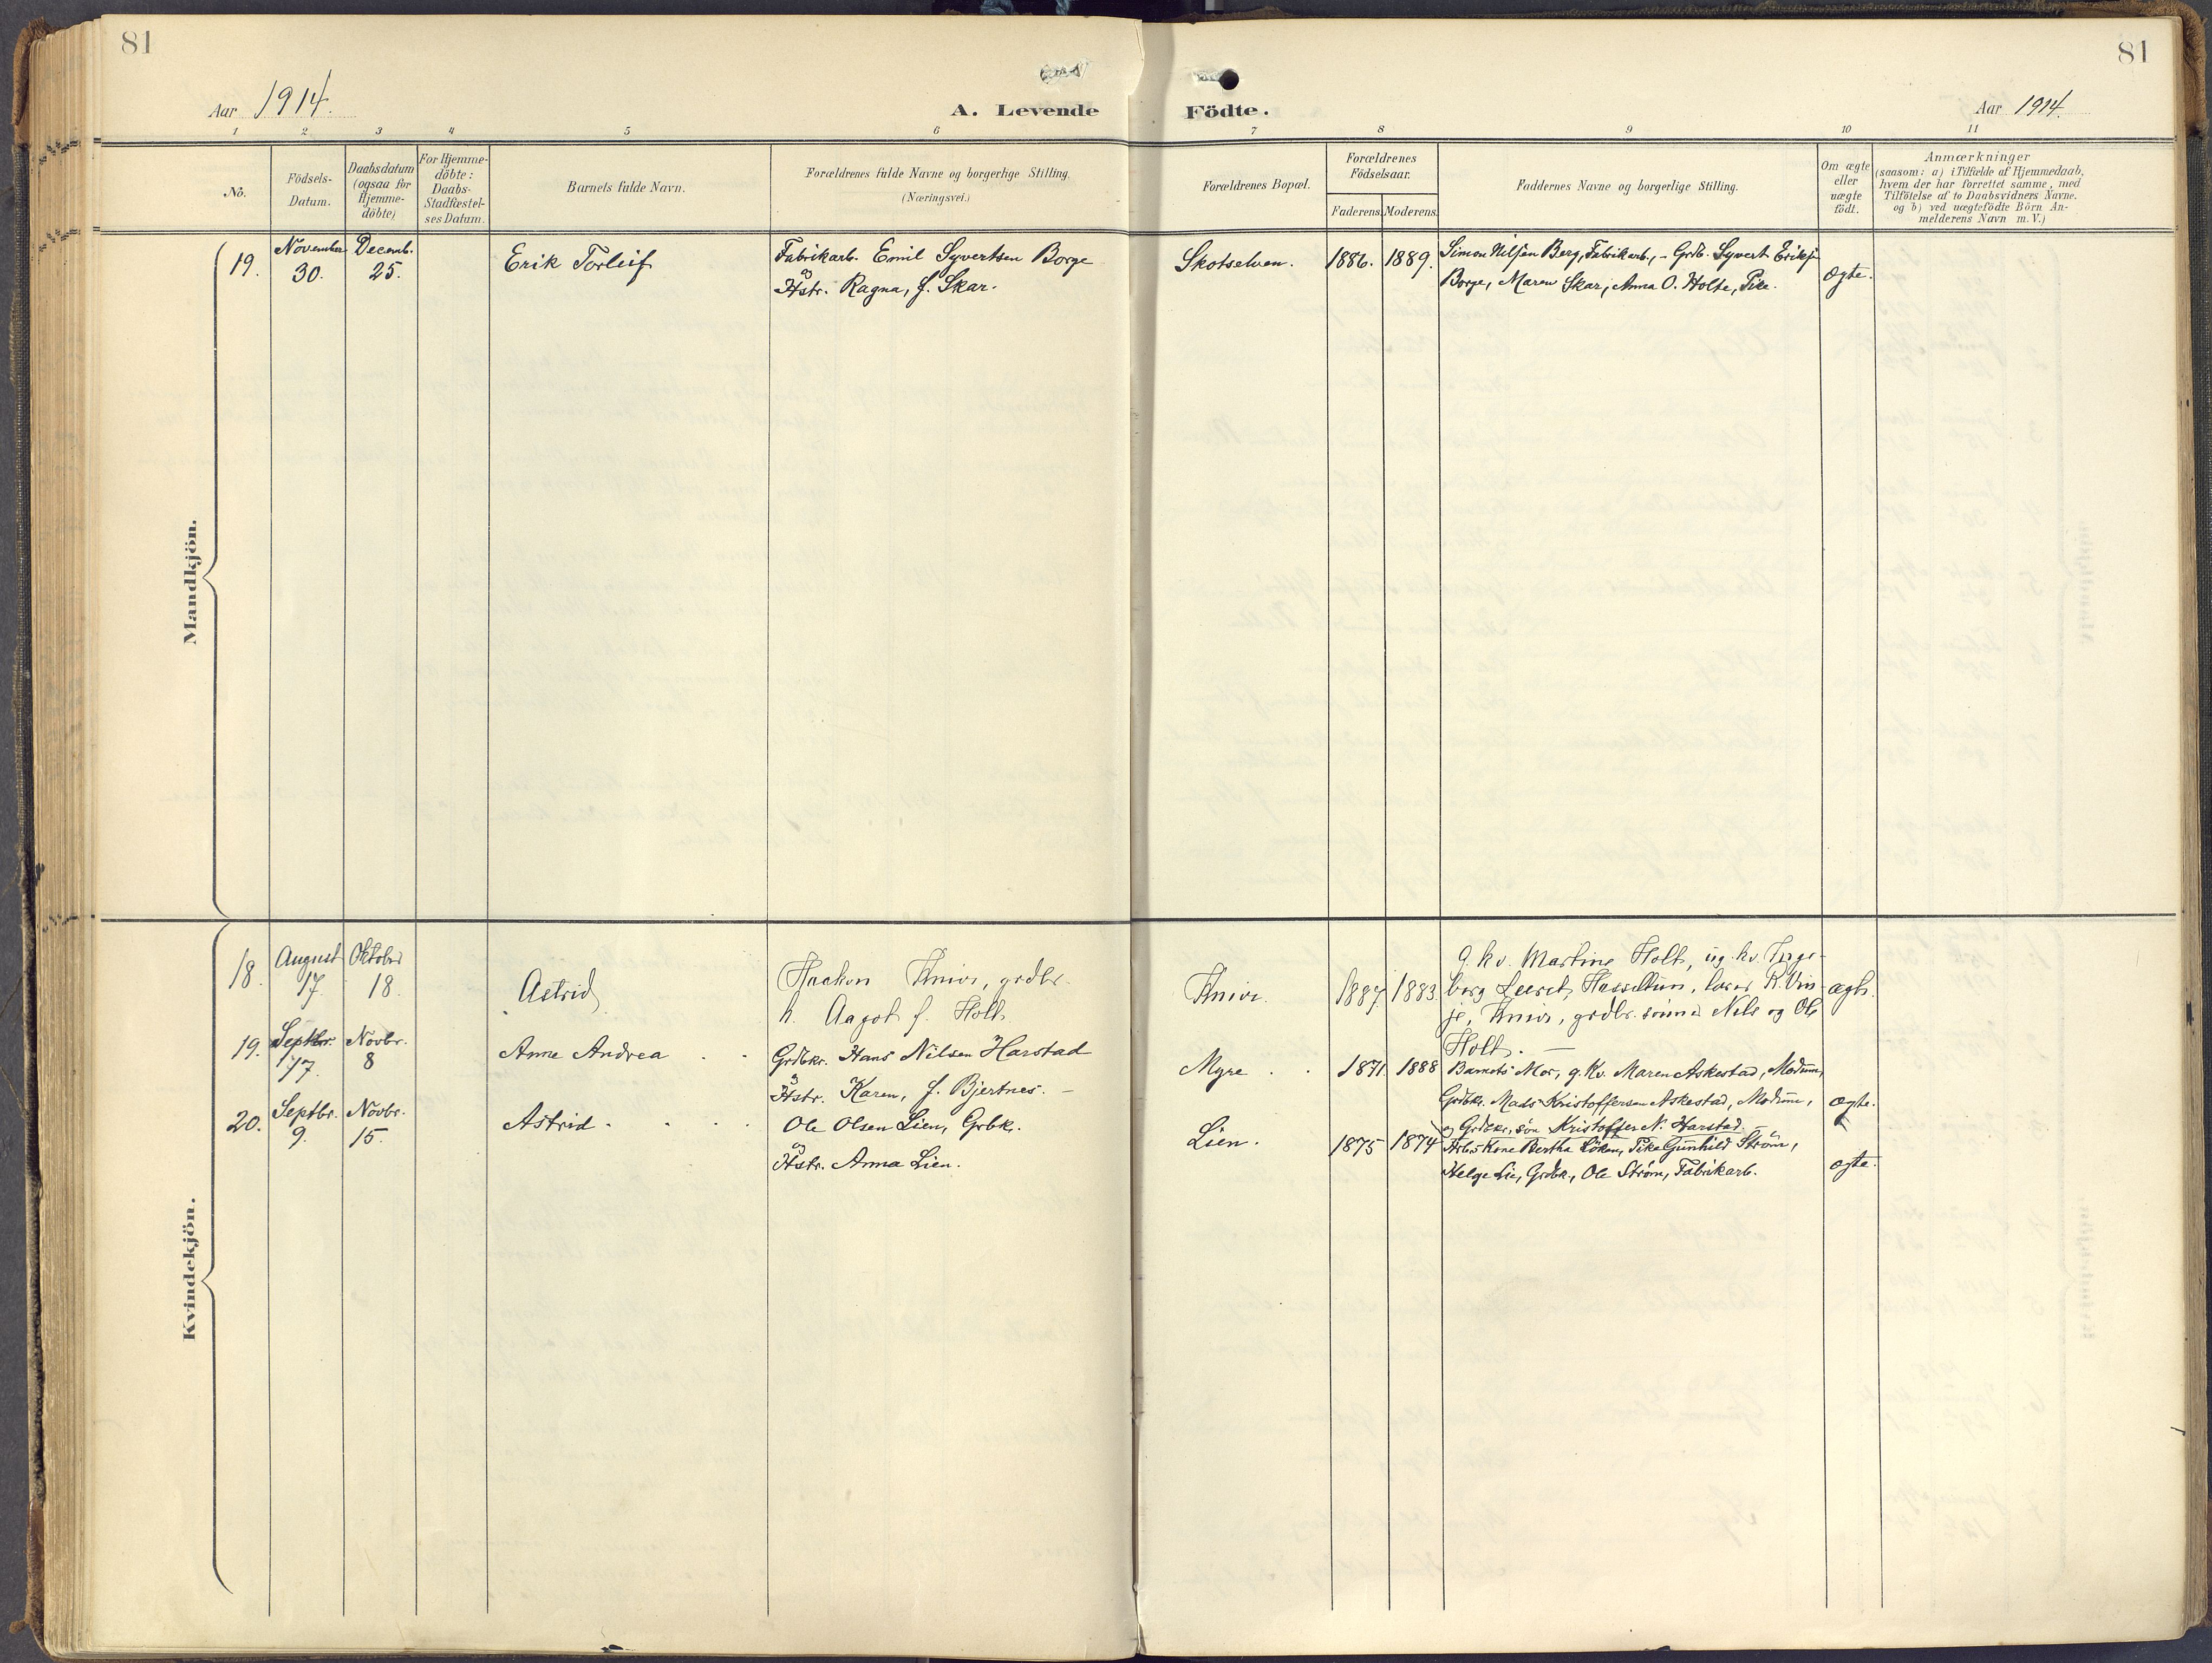 81
81
Aar 1914.
A. Levende Födte.
Aar 1914.
1 2 3 4 5 6 7 8 9 10 11
No.
Födsels-
Datum.
Daabsdatum
(ogsaa for
Hjemme-
döbte)
For Hjemme-
döbte:
Daabs-
Stadfæstel-
ses Datum.
Barnets fulde Navn.
Forældrenes fulde Navne og borgerlige Stilling.
(Næringsvei.)
Forældrenes Bopæl.
Forældrenes
Födselsaar.
Faderens. Moderens.
Faddernes Navne og borgerlige Stilling.
Om ægte
eller
uægte
födt.
Anmærkninger
(saasom: a) i Tilfælde af Hjemmedaab,
hvem der har forrettet samme, med
Tilföielse af to Daabsvidners Navne.
og b) ved uægtefödte Börn An-
melderens Navn m.V.)
Mandkjön.
19.
November
30.
Decemb.
25.
Erik Torleif
Fabrikarb. Emil Syvertsen Borge
og Hstr. Ragna, f. Skar.
Skotselven.
1886. 1889.
Simon Nilsen Berg, Fabrikarb., - Grdb. Syvert Eriks.
Borge, Maren Skar, Anna O. Holte, Pike.
ægte.
Kvindekjön.
18.
August
17.
Oktober
18.
Astrid
Haakon Knive, grdbr.
h. Aagot f. Holt
Knive.
1887. 1883.
g. kv. Martine Holt, ug. kv. Inge-
borg Hassellun, lærer K. Vin-
je, Knive, grdbr. sönner Nils og Ole
Holt. —
ægte.
19.
Septbr.
17.
Novbr.
8
Anne Andrea
Grdbkr. Hans Nilsen Harstad
og Hstr. Karen, f. Bjertnes. —
Myre
1871. 1888
Barnets Mor, g. Kv. Maren Askestad, Modum,
Grdbkr. Mads Kristoffersen Askestad, Modum,
og Grdbkr. sön Kristoffer N. Harstad.
ægte.
20.
Septbr.
9.
Novbr.
15.
Astrid.
Ole Olsen Lien, Grbk.
og Hstr. Anna Lien.
Lien.
1875 1874
Arb. Kone Bertha Löken, Pike Gunhild Ström,
Helge Lie, Grdbk., Ole Ström, Fabrikarb.
ægte.